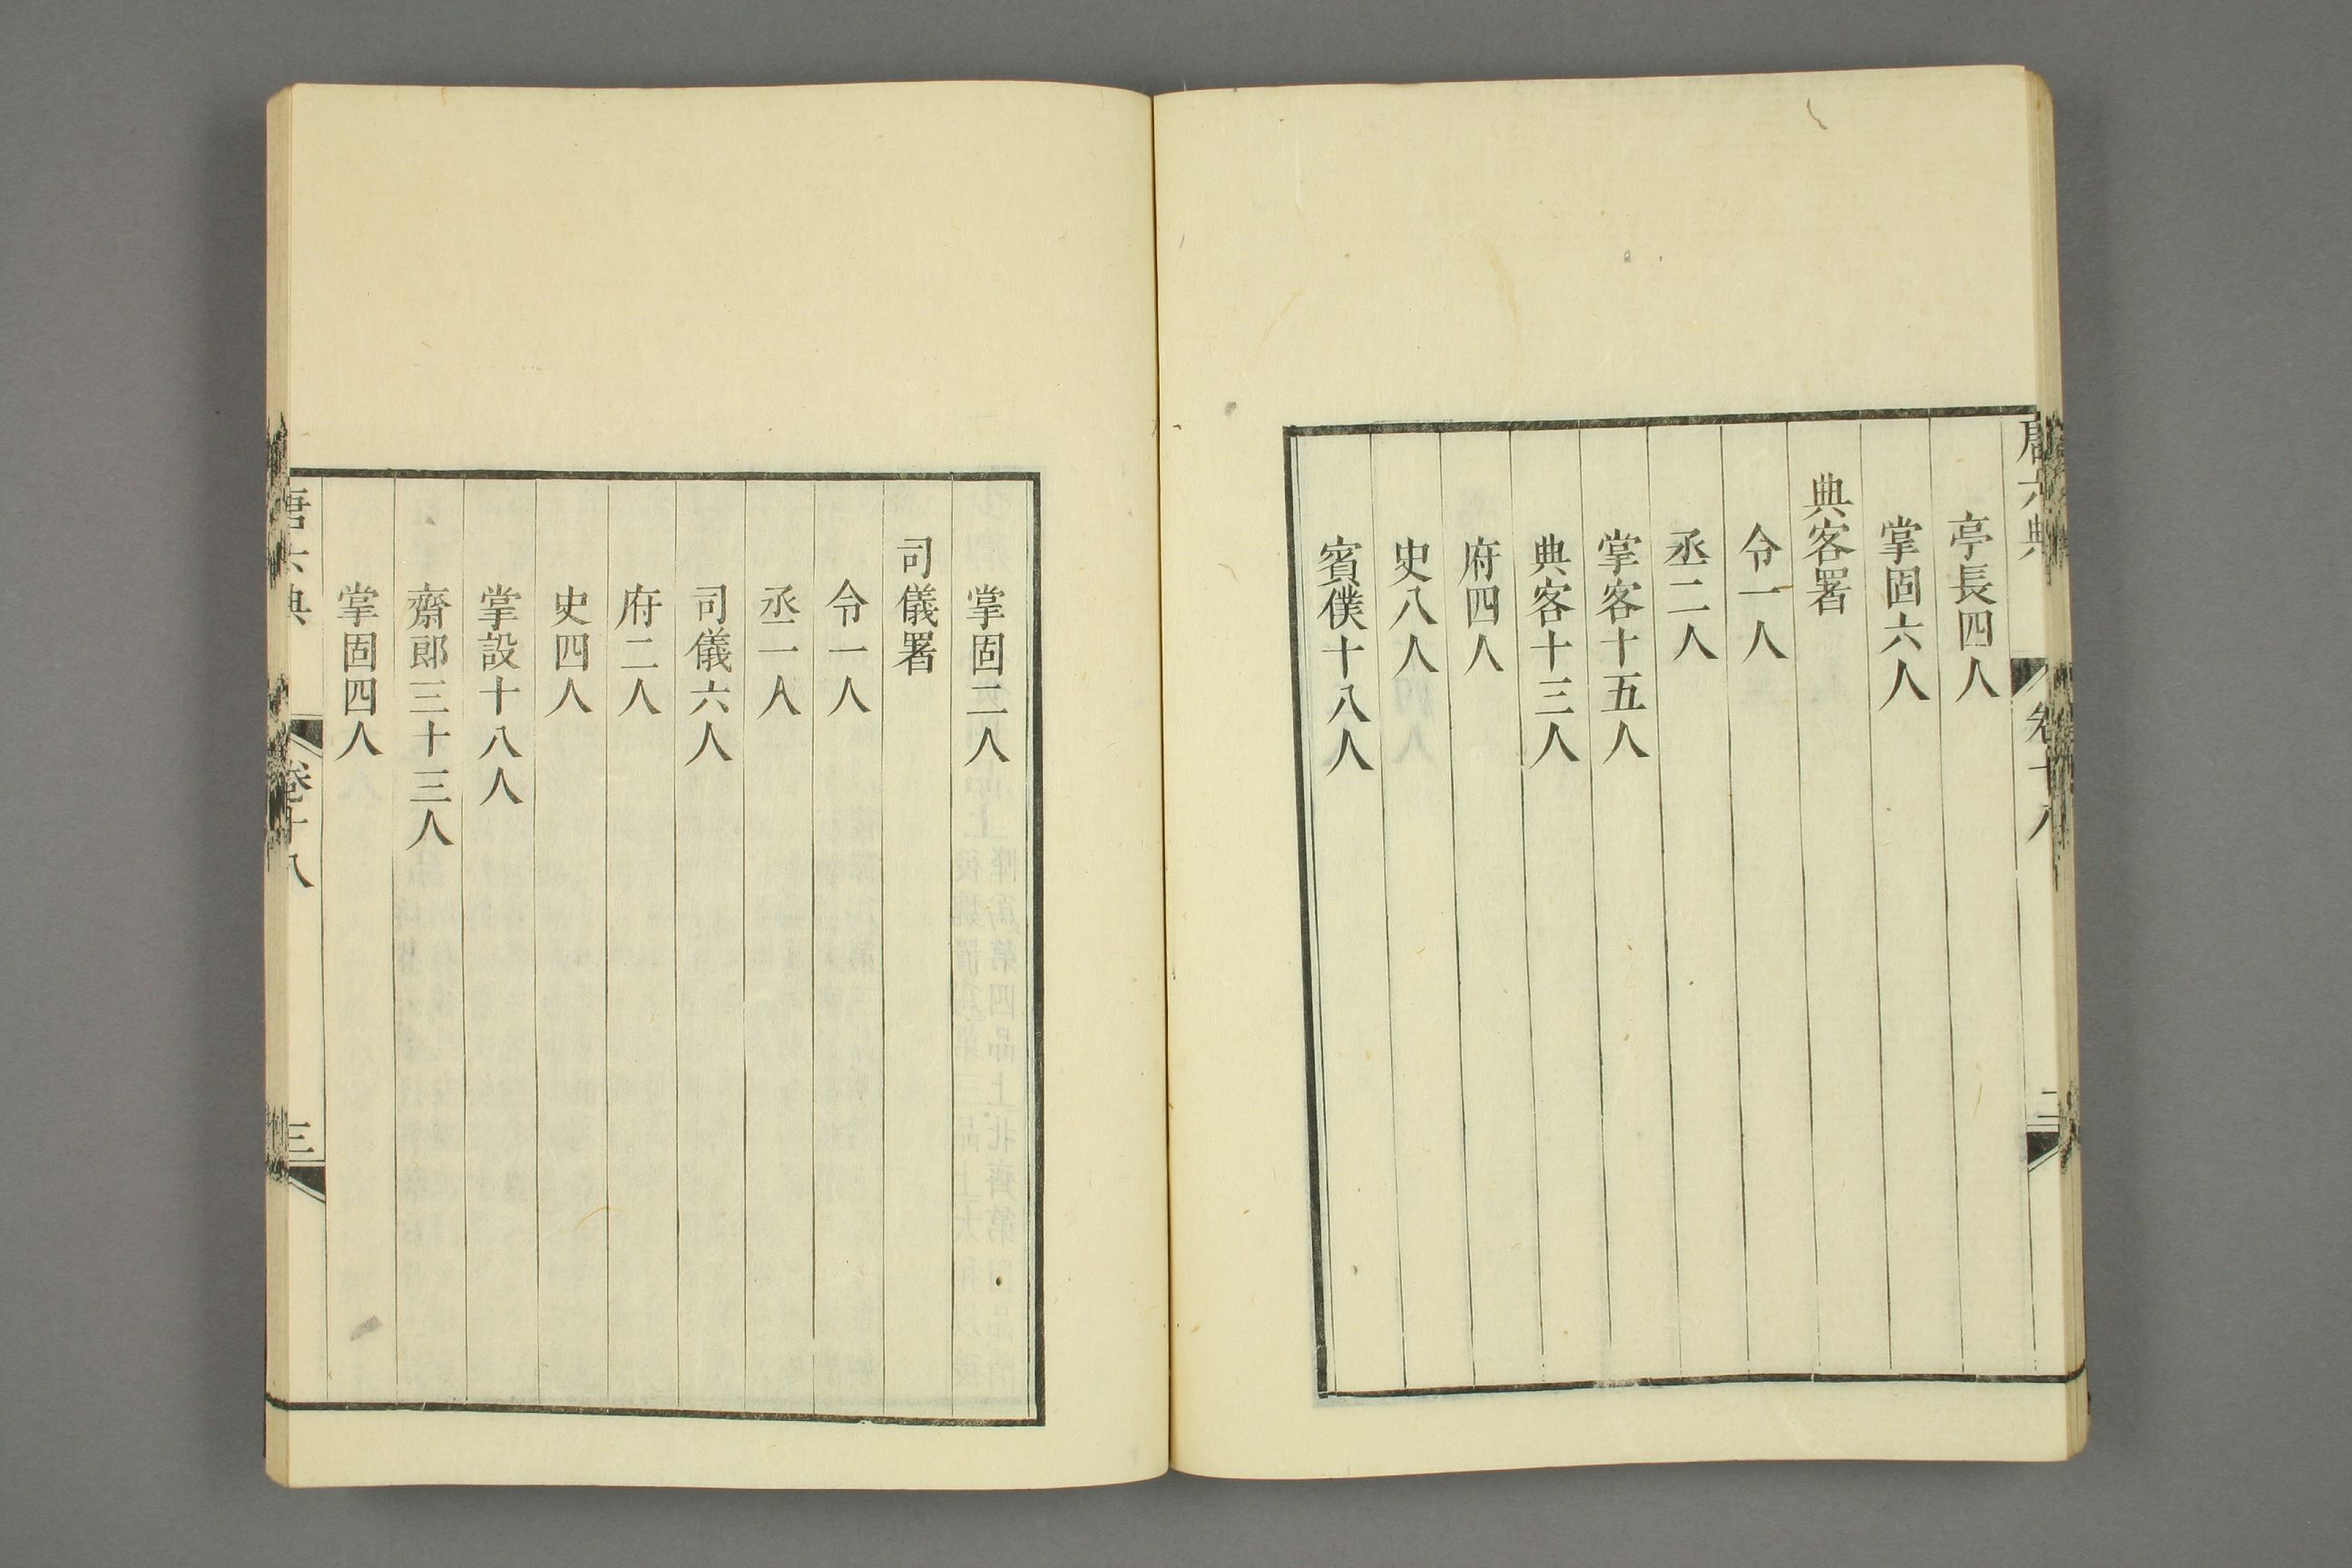 唐六典 卷十八 二
亭長四人
掌固六人
典客署
令一人
丞二人
掌客十五人
典客十三人
府四人
史八人
賓僕十八人
掌固二人
司儀署
令一人
丞一人
司儀六人
府二人
史四人
掌設十八人
齋郎三十三人
掌固四人
唐六典 卷十八 三